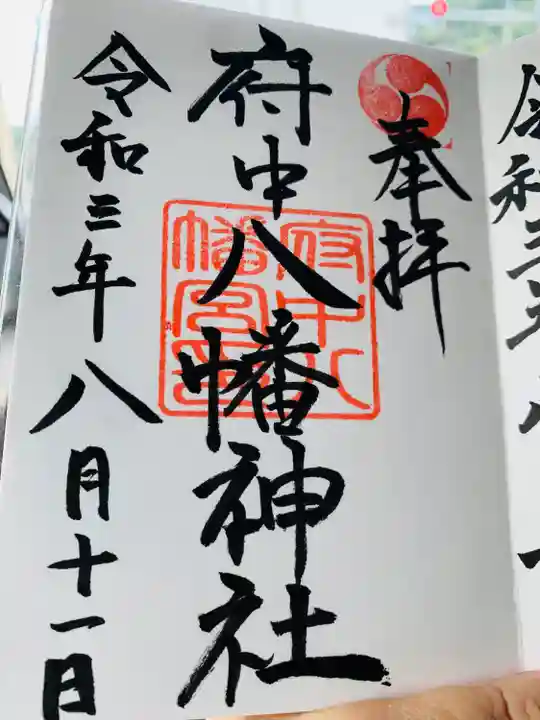 奉拝
府中八幡神社
府中八
幡宮
令和三年八月十一日
令和三年八